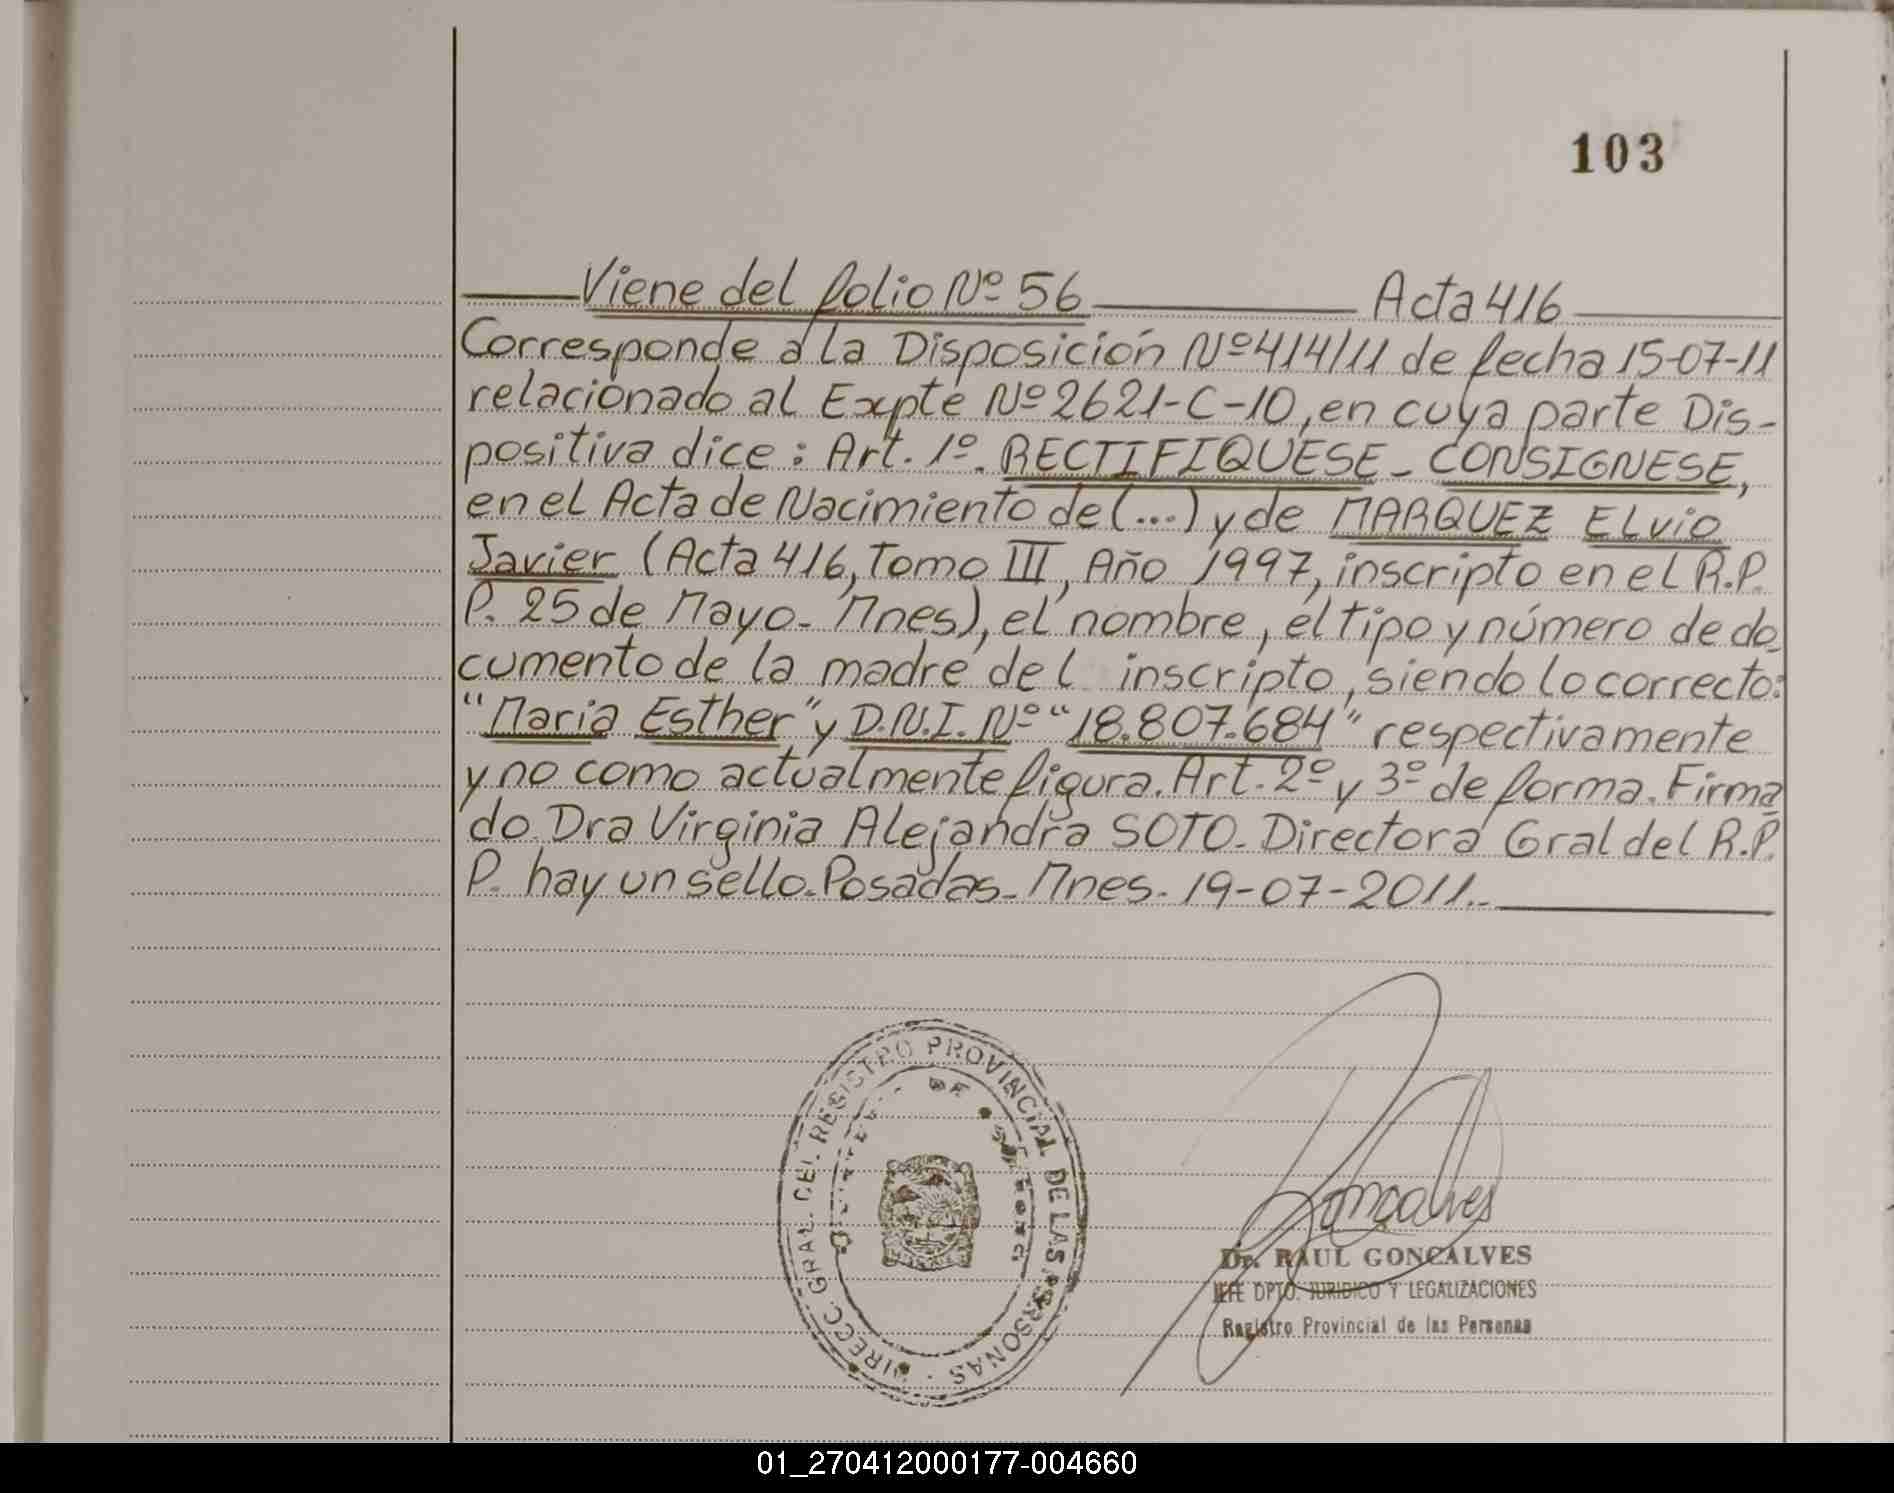 103
Viene del folio Nº 56 Acta 416
Corresponde a la Disposición Nº 414/11 de fecha 15-07-11
relacionado al Expte Nº 2621-C-10, en cuya parte Dis-
positiva dice: Art. 1º. RECTIFIQUESE - CONSIGNESE,
en el Acta de Nacimiento de (...) y de MARQUEZ ELvio
Javier (Acta 416, Tomo III, Año 1997, inscripto en el R.P.
P. 25 de Mayo - Mnes), el nombre, el tipo y número de do-
cumento de la madre del inscripto, siendo lo correcto:
"Maria Esther" y D.N.I. Nº "18.807.684" respectivamente
y no como actualmente figura. Art. 2º y 3º de forma. Firma
do Dra Virginia Alejandra SOTO - Directora Gral del R.P.
P. hay un sello. Posadas - Mnes - 19-07-2011.-
DIRECC. GRAL. DEL REGISTRO PROVINCIAL DE LAS PERSONAS
Goncalves
Dr. RAUL GONCALVES
JEFE DPTO. JURIDICO Y LEGALIZACIONES
Registro Provincial de las Personas
01_270412000177-004660